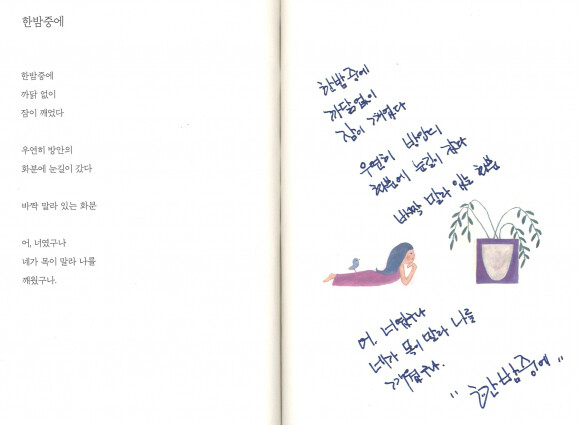 한밤중에
한밤중에
까닭 없이
잠이 깨었다
우연히 방안의
화분에 눈길이 갔다
바짝 말라 있는 화분
어, 너였구나
네가 목이 말라 나를
깨웠구나.
한밤중에
까닭없이
잠이 깨었다
우연히 방안의
화분에 눈길이 갔다
바짝 말라 있는 화분
어, 너였구나
네가 목이 말라 나를
깨웠구나.
"한밤중에"